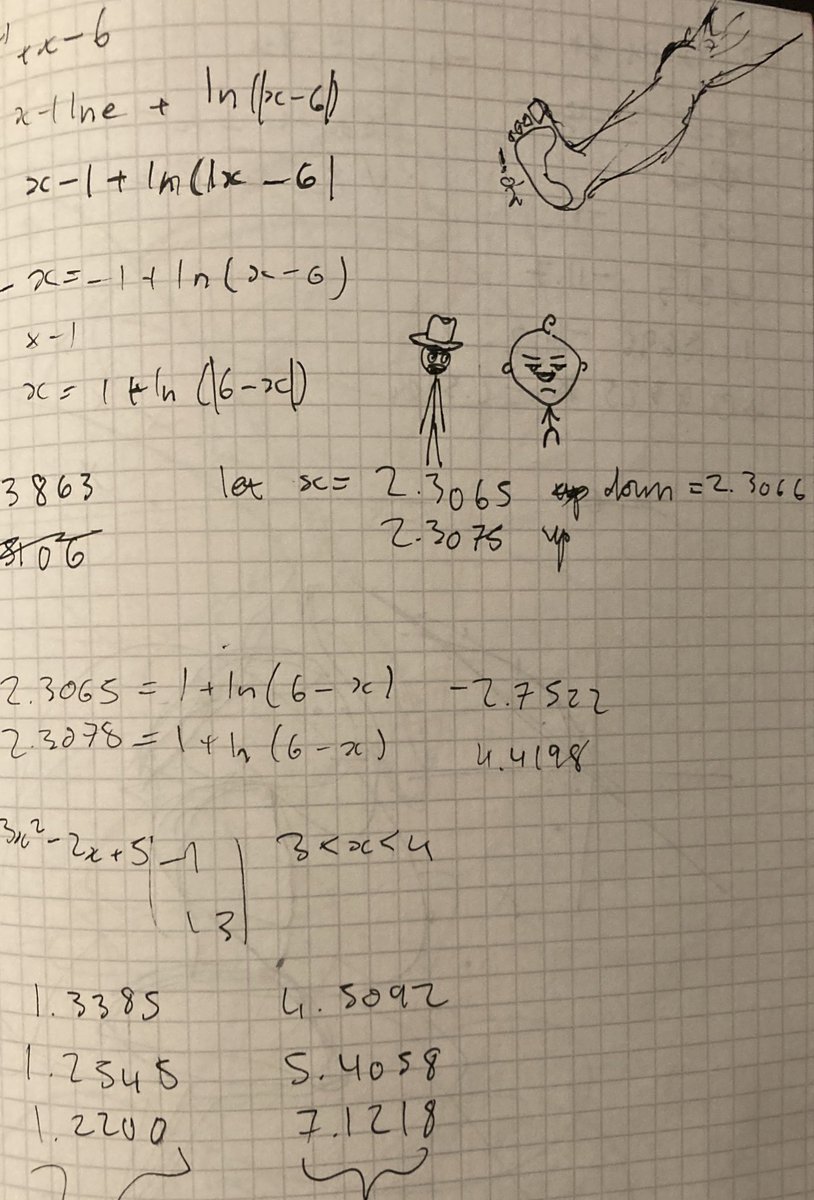 +x-6
x-1 lne + ln(|x-6|)
x-1 + ln(|x-6|
- x=-1+ln(x-6)
x-1
x= 1+ln(|6-x|)
3863 let x= 2.3065 down = 2.3066
06 2.3075 up
2.3065 = 1+ln(6-x) -2.7522
2.3078 = 1+ln(6-x) 4.4198
3x²-2x+5 -1 3<x<4
13
1.3385 4.5092
1.2545 5.4058
1.2200 7.1218